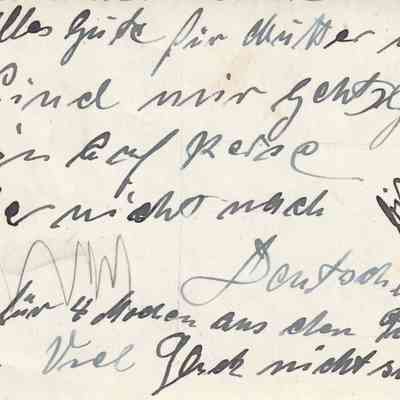 lles Gute für Mutter
ind mir geht
in auf Reise
er nicht nach
Deutsch
für 4 Wochen aus den
Viel Glück nicht